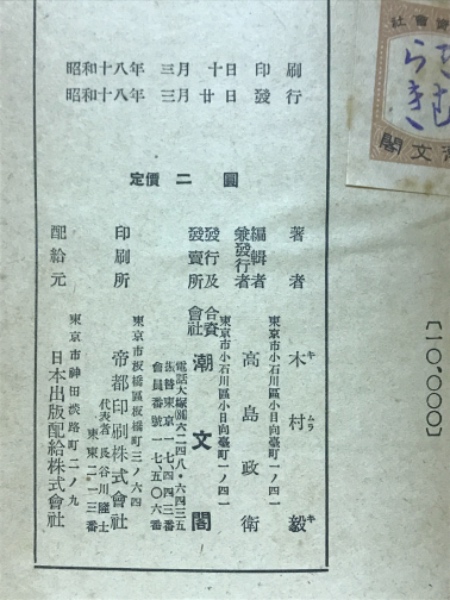 昭和十八年　三月　十日　印　刷
昭和十八年　三月　廿日　發　行
定價　二　圓
著者
東京市小石川區小日向臺町一ノ四一
木村毅
キムラキ
編輯者
兼發行者
東京市小石川區小日向臺町一ノ四一
高島政衛
發行及
發賣所
合資
會社
潮文閣
電話大塚(86)六二四八・六四三五
振替東京一七、四四三番
會員番號一一七、五〇六番
印刷所
東京市板橋區板橋町三ノ六四
帝都印刷株式會社
代表者長谷川隆士
東東二一三番
配給元
東京市神田淡路町二ノ九
日本出版配給株式會社
[10,000]
社會資
きむらき
閣文